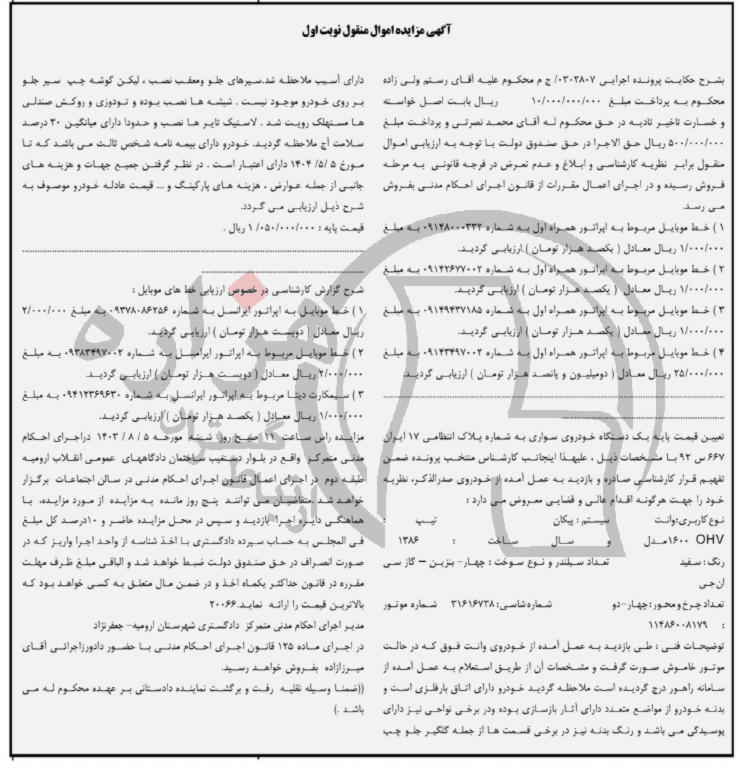 آگهی مزایده اموال منقول نوبت اول
بشرح حکایت پرونده اجرایی ۰۳۰۳۸۰۷/ ج م محکوم علیه آقای رستم ولی زاده
محکوم به پرداخت مبلغ ۱۰/۰۰۰/۰۰۰/۰۰۰ ریال بابت اصل خواسته
و خسارت تاخیر تادیه در حق محکوم له آقای محمد نصرتی و پرداخت مبلغ
۵۰۰/۰۰۰/۰۰۰ ریال حق الاجرا در حق صندوق دولت با توجه به ارزیابی اموال
منقول برابر نظریه کارشناسی و ابلاغ و عدم تعرض در فرجه قانونی به مرحله
فروش رسیده و در اجرای اعمال مقررات از قانون اجرای احکام مدنی بفروش
می رسد.
۱ ) خط موبایل مربوط به اپراتور همراه اول به شماره ۰۹۱۴۸۰۰۰۳۳۲ به مبلغ
۱/۰۰۰/۰۰۰ ریال معادل ( یکصد هزار تومان ) ارزیابی گردید.
۲ ) خط موبایل مربوط به اپراتور همراه اول به شماره ۰۹۱۴۲۶۷۷۰۰۲ به مبلغ
۱/۰۰۰/۰۰۰ ریال معادل ( یکصد هزار تومان ) ارزیابی گردید.
۳ ) خط موبایل مربوط به اپراتور همراه اول به شماره ۰۹۱۴۹۴۳۷۱۸۵ به مبلغ
۱/۰۰۰/۰۰۰ ریال معادل ( یکصد هزار تومان ) ارزیابی گردید.
۴ ) خط موبایل مربوط به اپراتور همراه اول به شماره ۰۹۱۴۳۴۹۷۰۰۲ به مبلغ
۲۵/۰۰۰/۰۰۰ ریال معادل ( دومیلیون و پانصد هزار تومان ) ارزیابی گردید.
تعیین قیمت پایه یک دستگاه خودروی سواری به شماره پلاک انتظامی ۱۷ ایران
۶۶۷ س ۹۲ با مشخصات ذیل ، علیهذا اینجانب کارشناس منتخب پرونده ضمن
تفهیم قرار کارشناسی صادره و بازدید به عمل آمده از خودروی صدرالذکر، نظریه
خود را جهت هرگونه اقدام عالی و قضایی معروض می دارد :
نوع کاربری:وانت سیستم : پیکان تیپ :
OHV ۱۶۰۰مدل و سال ساخت : ۱۳۸۶
رنگ : سفید تعداد سیلندر و نوع سوخت : چهار- بنزین – گاز سی
ان جی
تعداد چرخ و محور: چهار-دو شماره شاسی: ۳۱۶۱۶۷۳۸ شماره موتور
: ۱۱۴۸۶۰۰۸۱۷۹
توضیحات فنی : طی بازدید به عمل آمده از خودروی وانت فوق که در حالت
موتور خاموش صورت گرفت و مشخصات آن از طریق استعلام به عمل آمده از
سامانه راهور درج گردیده است ملاحظه گردید خودرو دارای اتاق بارفلزی است و
بدنه خودرو از مواضع متعدد دارای آثار بازسازی بوده ودر برخی نواحی نیز دارای
پوسیدگی می باشد و رنگ بدنه نیز در برخی قسمت ها از جمله گلگیر جلو چپ
دارای آسیب ملاحظه شد.سپرهای جلو ومعقب نصب ، لیکن گوشه چپ سپر جلو
بر روی خودرو موجود نیست . شیشه ها نصب بوده و تودوزی و روکش صندلی
ها مستهلک رویت شد . لاستیک تایر ها نصب و حدودا دارای میانگین ۳۰ درصد
سلامت آج ملاحظه گردید. خودرو دارای بیمه نامه شخص ثالث می باشد که تا
مورخ ۱۴۰۴ /۵/ ۵ دارای اعتبار است . در نظر گرفتن جمیع جهات و هزینه های
جانبی از جمله عوارض ، هزینه های پارکینگ و ... قیمت عادله خودرو موصوف به
شرح ذیل ارزیابی می گردد.
قیمت پایه : ۱/۰۵۰/۰۰۰/۰۰۰ ریال .
شرح گزارش کارشناسی در خصوص ارزیابی خط های موبایل :
۱ ) خط موبایل به اپراتور ایرانسل به شماره ۰۹۳۷۸۰۸۶۲۵۶ به مبلغ ۲/۰۰۰/۰۰۰
ریال معادل ( دویست هزار تومان ) ارزیابی گردید.
۲ ) خط موبایل مربوط به اپراتور ایرانسل به شماره ۰۹۳۸۳۴۹۷۰۰۲ به مبلغ
۲/۰۰۰/۰۰۰ ریال معادل ( دویست هزار تومان ) ارزیابی گردید.
۳ ) سیمکارت دیتا مربوط به اپراتور ایرانسل به شماره ۰۹۴۱۲۳۶۹۶۳۰ به مبلغ
۱/۰۰۰/۰۰۰ ریال معادل ( یکصد هزار تومان ) ارزیابی گردید.
مزایده راس ساعت ۱۱ صبح روز شنبه مورخه ۵ / ۸ / ۱۴۰۳ دراجرای احکام
مدنی متمرکز واقع در بلوار دستغیب ساختمان دادگاههای عمومی انقلاب ارومیه
طبقه دوم در اجرای اعمال قانون اجرای احکام مدنی در سالن اجتماعات برگزار
خواهد شد .متقاضیان می توانند پنج روز مانده به مزایده از مورد مزایده، با
هماهنگی دایره اجرا بازدید و سپس در محل مزایده حاضر و ۱۰درصد کل مبلغ
فی المجلس به حساب سپرده دادگستری با اخذ شناسه از واحد اجرا واریز که در
صورت انصراف در حق صندوق دولت ضبط خواهد شد و الباقی مبلغ ظرف مهلت
مقرره در قانون حداکثر یکماه اخذ و در ضمن مال متعلق به کسی خواهد بود که
بالاترین قیمت را ارائه نماید.۲۰۰۶۶
مدیر اجرای احکام مدنی متمرکز دادگستری شهرستان ارومیه- جعفرنژاد
در اجرای ماده ۱۲۵ قانون اجرای احکام مدنی با حضور دادورزاجرائی آقای
میرزازاده بفروش خواهد رسید.
((ضمنا وسیله نقلیه رفت و برگشت نماینده دادستانی بر عهده محکوم له می
باشد .)
هزاره